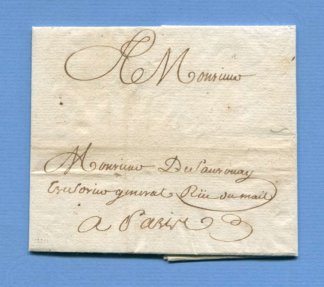 A Monsieur
Monsieur De Launay
tresorier general Rüe du mail
a Paris